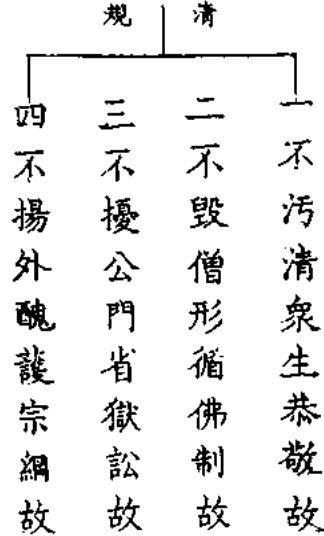 清規
一不汚清衆生恭敬故
二不毀僧形循佛制故
三不擾公門省獄訟故
四不揚外醜護宗綱故